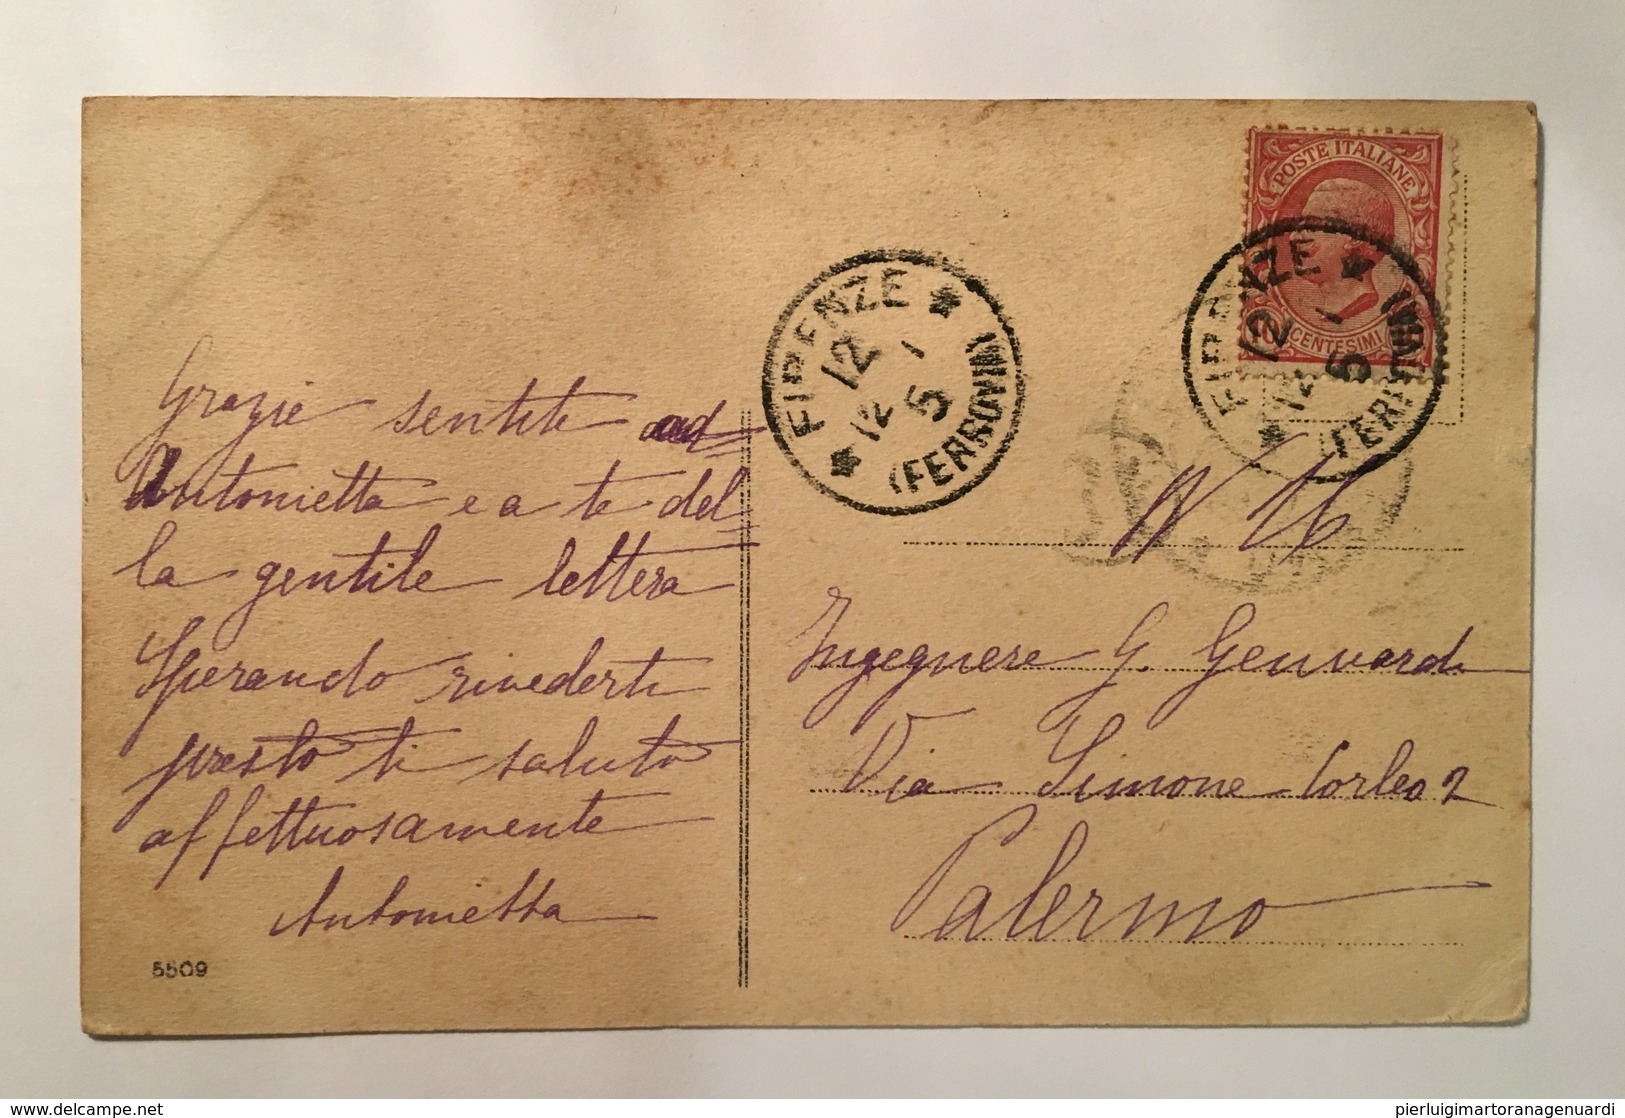 Grazie sentite ad
Antonietta e a te del
la gentile lettera
Sperando rivederti
presto ti saluto
affettuosamente
Antonietta
5509
FIRENZE
12 - 1
12 5
(FERROVIA)
POSTE ITALIANE
10 CENTESIMI
FIRENZE
12 - 1
12 5
(FERROVIA)
N H
Ingegnere G. Genuardi
Via Simone Corleo 2
Palermo
www.delcampe.net
pierluigimartoranagenuardi